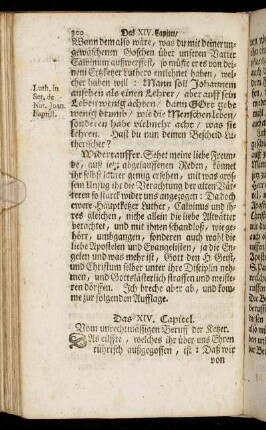 300 Das XIV. Capitel/
Wann dem also wäre, was du mit deiner un-
gewäschenen Goschen über unseren Vatter
Calvinum außwerffest, so müste er es von dei-
nem Ertzketzer Luthero entlehnet haben, wel-
cher haben will: Mann soll Johannem
ansehen als einen Lehrer/ aber auff sein
Leben wenig achten/ dann GOtt gebe
wenig drumb/ wie die Menschen leben/
sonderen habe vielmehr acht/ was sie
lehren. Hast du nun deinen Bescheid Lu-
therischer?
Luth. in
Ser. de
Nat. Joan.
Baptist.
Widertauffer. Sehet meine liebe Freun-
de, auß jetz abgelauffenen Reden, könnet
ihr selbst leicht genug ersehen, mit was gros-
sem Unfug ihr die Verachtung der alten Vät-
teren so starck wider uns angezogen: Da doch
euere Haupt-Ketzer Luther, Calvinus und ih-
res gleichen, nicht allein die liebe Altvätter
verachtet, und mit ihnen schandloß, wie ge-
hört, umbgangen, sonderen auch wohl die
liebe Apostelen und Evangelisten, ja die En-
gelen und was mehr ist, Gott den H. Geist,
und Christum selber unter ihre Disciplin neh-
men, und Gottslästerlich straffen und meiste-
ren dörffen. Ich breche aber ab, und kom-
me zur folgenden Aufflage.
Das XIV. Capitel.
Vom unrechtmässigen Beruff der Ketzer.
DAs eilffte, welches ihr über uns Ehren
rührisch außgegossen, ist: Daß wir
von